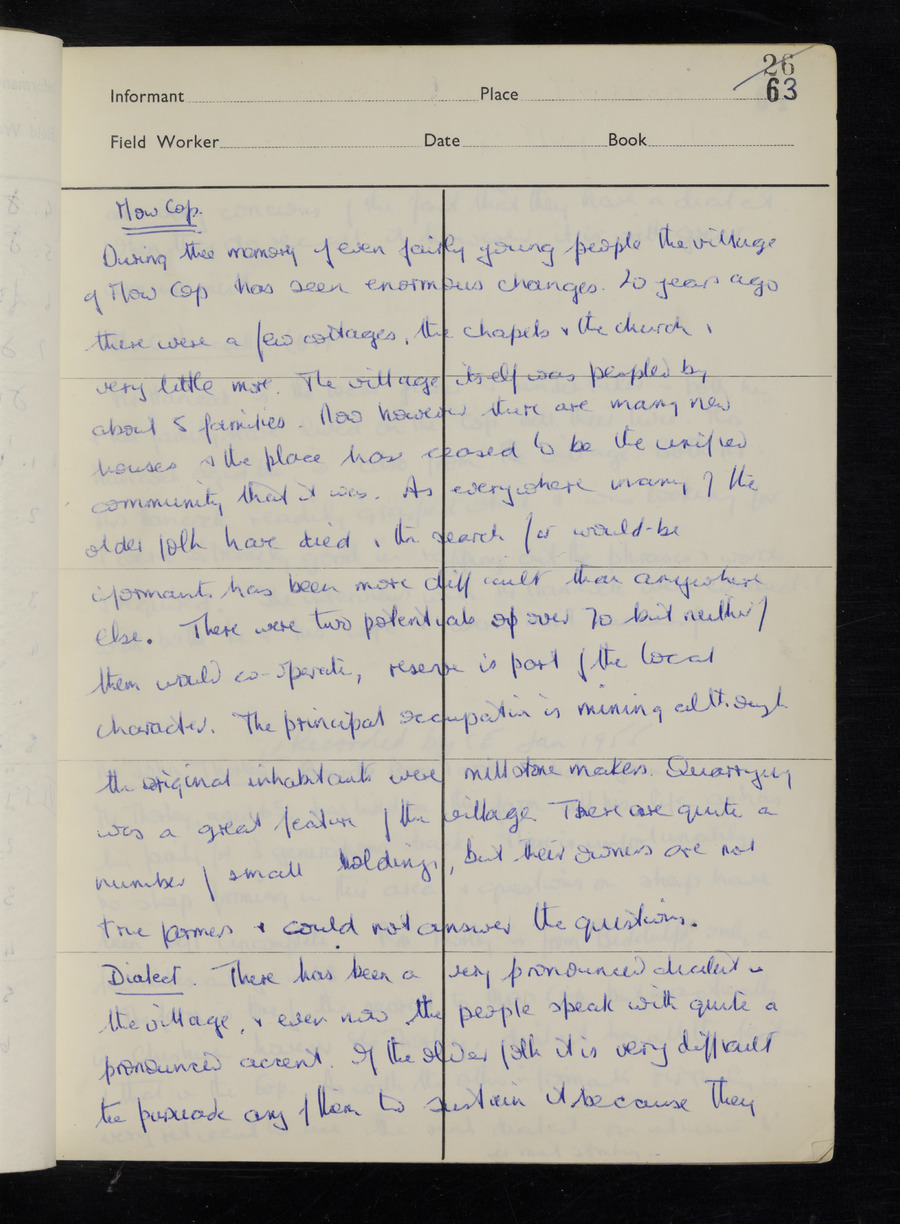 26
63
Informant Place
Field Worker Date Book
Mow Cop.
During the memory of even fairly young people the village
of Mow Cop has seen enormous changes. 20 years ago
there were a few cottages, the chapels & the church,
very little more. The village itself was peopled by
about 5 families. Now however there are many new
houses & the place has ceased to be the unified
community that it was. As everywhere many of the
older folk have died, the search for would-be
informants has been more difficult than anywhere
else. There were two potentials of over 70 but neither of
them would co-operate, reserve is part of the local
character. The principal occupation is mining although
the original inhabitants were millstone makers. Quarrying
was a great feature of the village. There are quite a
number of small holdings, but their owners are not
true farmers & could not answer the questions.
Dialect. There has been a very pronounced dialect in
the village, & even now the people speak with quite a
pronounced accent. Of the older folk it is very difficult
to persuade any of them to sustain it because they